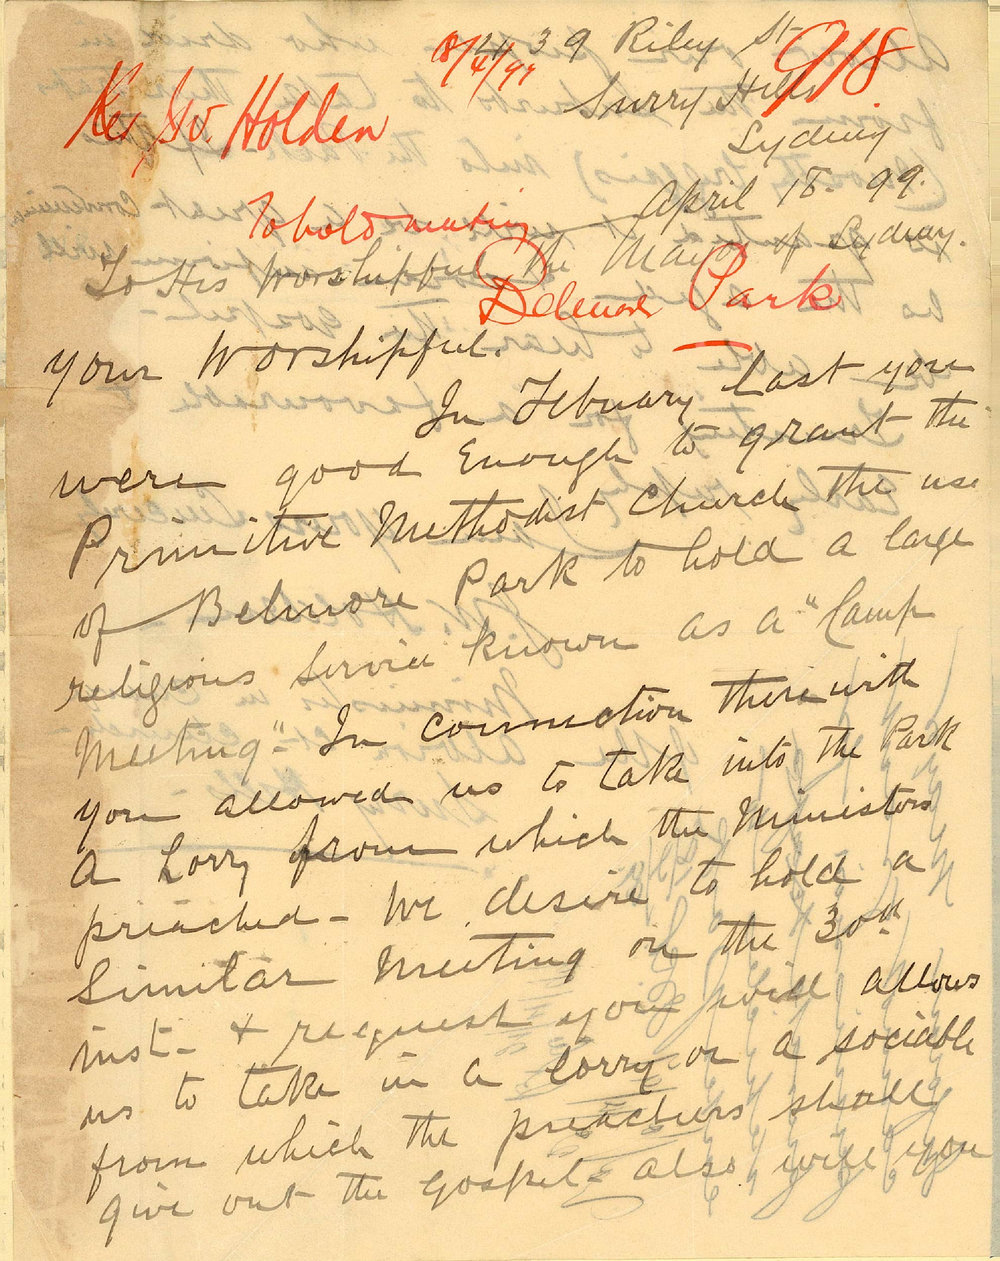 39 Riley St
918
18/4/99
Surry Hills
Rev Jos. Holden
Sydney
April 18. 99.
To hold meeting
To His Worshipful, the Mayor of Sydney.
Belmore Park
your Worshipful.
In Febuary last you
were good Enough to grant the
Primitive Methodist Church the use
of Belmore Park to hold a large
religious Service known as a "Camp
Meeting". In connection therewith
you allowed us to take into the Park
a Lorry from which the Ministers
preached - We desire to hold a
Similar Meeting on the 30th
inst - & request you will allow
us to take in a lorry or a sociable
from which the preachers shall
give out the Gospel - also will you